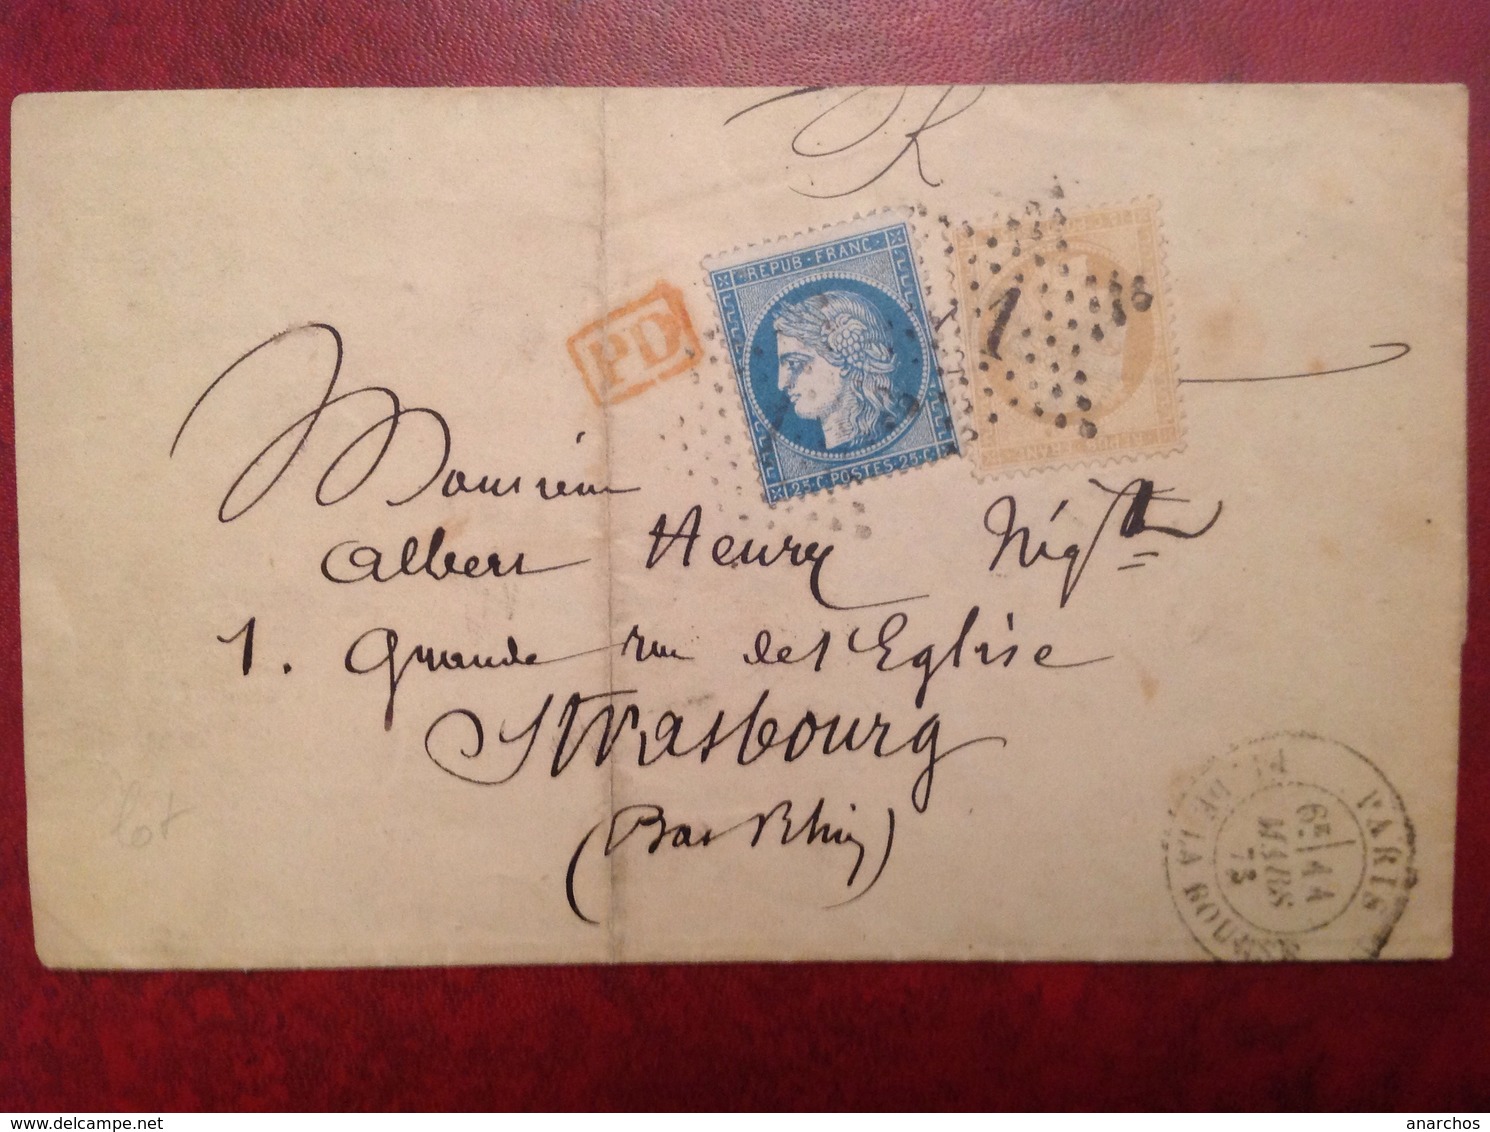 R
REPUB · FRANC ·
25·C POSTES·25·C
REPUB FRANC
PD
1
Monsieur
Albert Henry Négt
1. Grande rue de l'Eglise
Strasbourg
(Bas Rhin)
PARIS
PL. DE LA BOURSE
6E 14
MARS
73
www.delcampe.net
anarchos